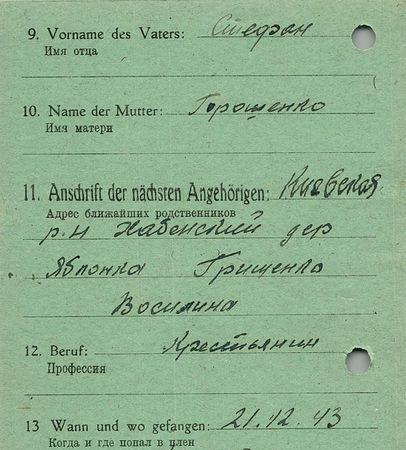 9. Vorname des Vaters: Стефан
Имя отца
10. Name der Mutter: Горошенко
Имя матери
11. Anschrift der nächsten Angehörigen: Киевская
Адрес ближайших родственников
р-н Хабенский дер
Яблонка Грищенко
Василина
12. Beruf: Крестьянин
Профессия
13 Wann und wo gefangen: 21.12.43
Когда и где попал в плен